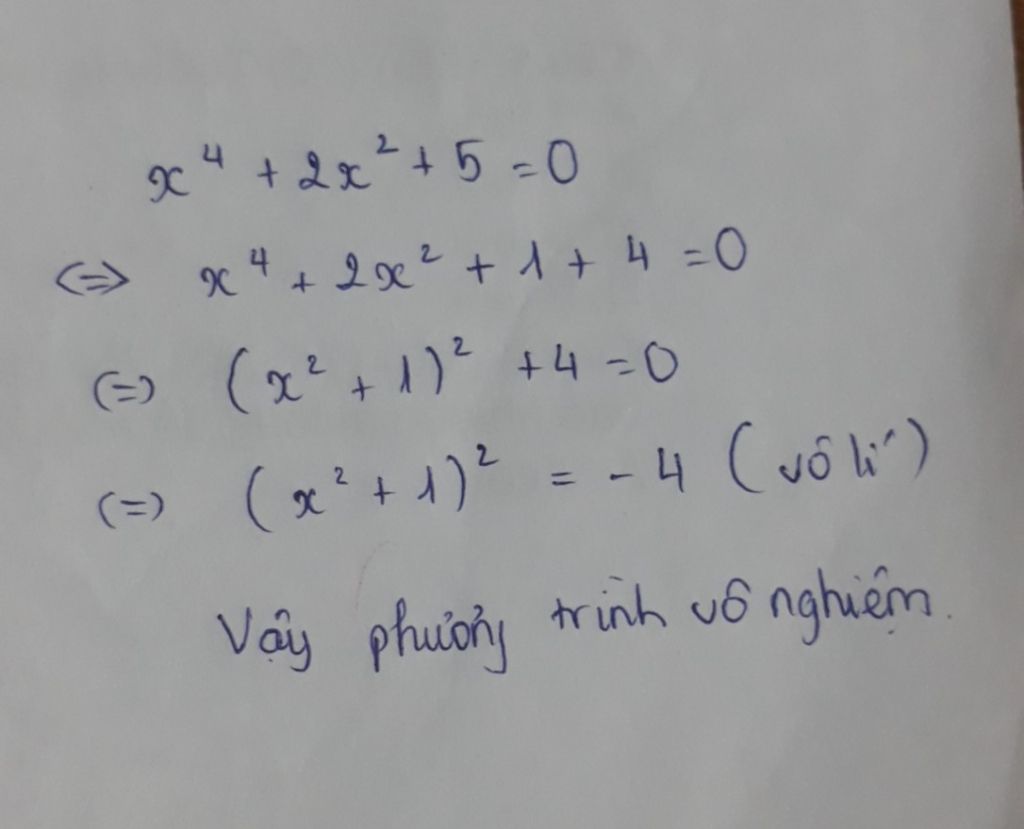 x⁴ + 2x² + 5 = 0
<=> x⁴ + 2x² + 1 + 4 = 0
(=) (x² + 1)² + 4 = 0
(=) (x² + 1)² = - 4 (vô lí)
Vậy phương trình vô nghiệm.